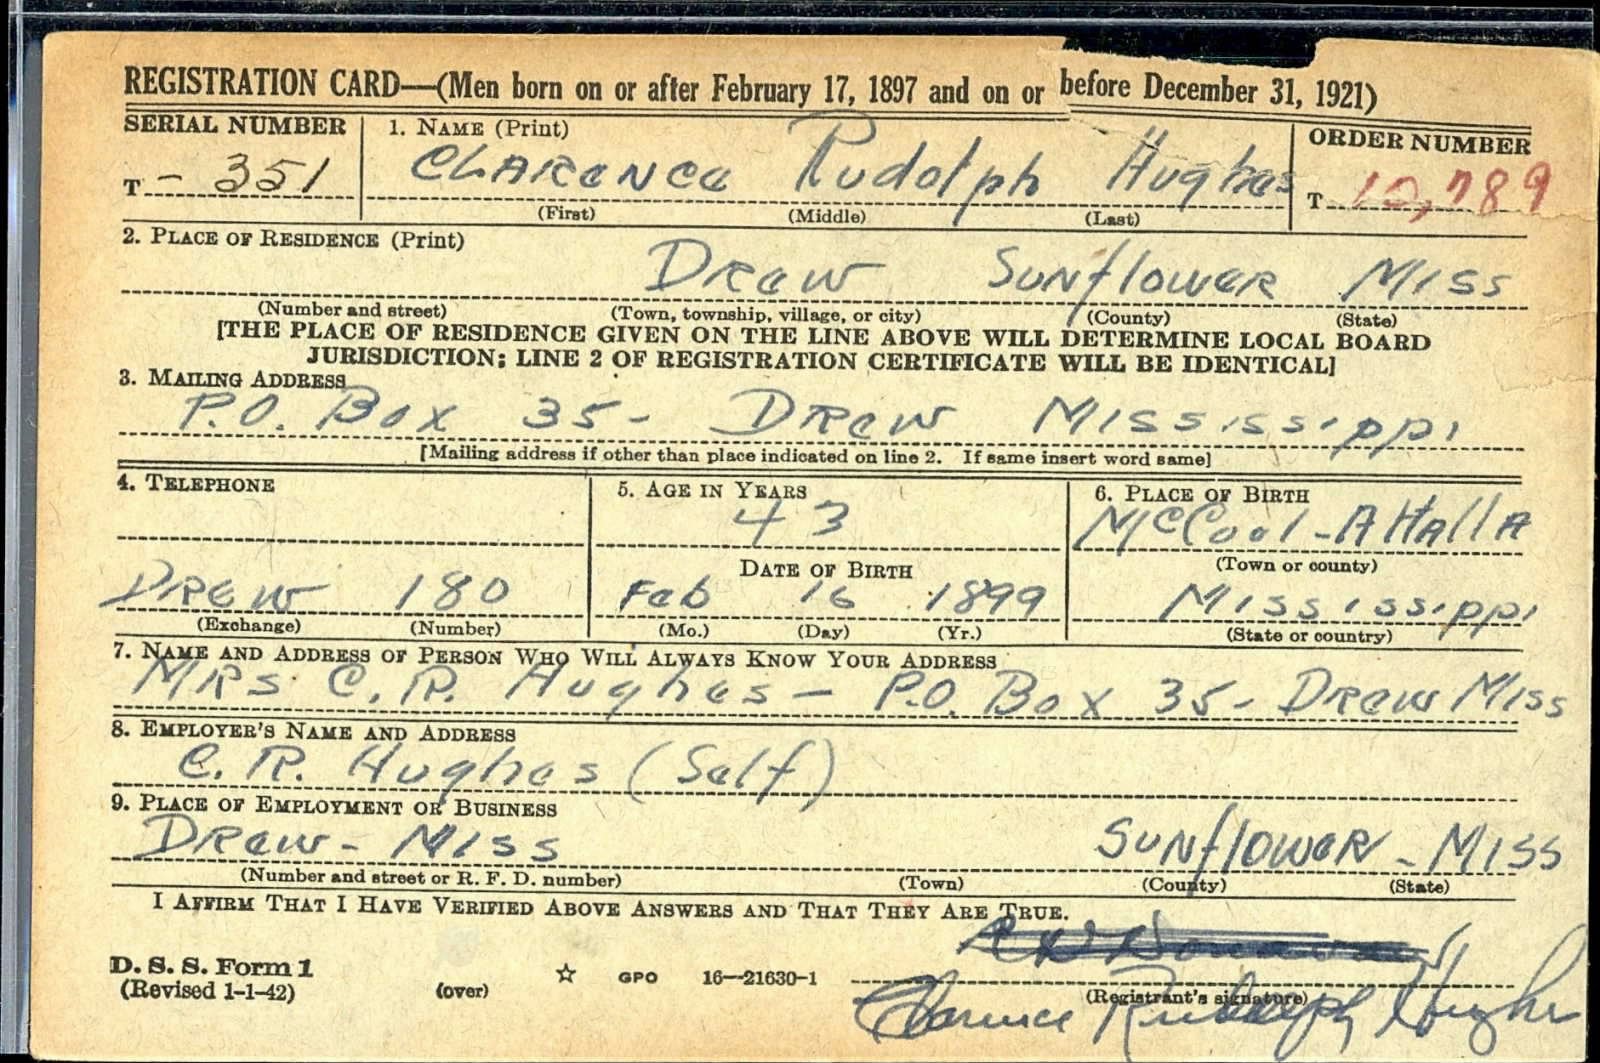 REGISTRATION CARD—(Men born on or after February 17, 1897 and on or before December 31, 1921)
SERIAL NUMBER 1. NAME (Print) ORDER NUMBER
T - 351 CLARENCE Rudolph Hughes T 10,789
(First) (Middle) (Last)
2. PLACE OF RESIDENCE (Print)
Drew Sunflower Miss
(Number and street) (Town, township, village, or city) (County) (State)
[THE PLACE OF RESIDENCE GIVEN ON THE LINE ABOVE WILL DETERMINE LOCAL BOARD
JURISDICTION; LINE 2 OF REGISTRATION CERTIFICATE WILL BE IDENTICAL]
3. MAILING ADDRESS
P.O. Box 35- Drew Mississippi
[Mailing address if other than place indicated on line 2. If same insert word same]
4. TELEPHONE 5. AGE IN YEARS 6. PLACE OF BIRTH
43 McCool - Attalla
DATE OF BIRTH (Town or county)
Drew 180 Feb 16 1899 Mississippi
(Exchange) (Number) (Mo.) (Day) (Yr.) (State or country)
7. NAME AND ADDRESS OF PERSON WHO WILL ALWAYS KNOW YOUR ADDRESS
Mrs C. R. Hughes - P.O. Box 35- Drew Miss
8. EMPLOYER'S NAME AND ADDRESS
C. R. Hughes (Self)
9. PLACE OF EMPLOYMENT OR BUSINESS
Drew - Miss Sunflower - Miss
(Number and street or R. F. D. number) (Town) (County) (State)
I AFFIRM THAT I HAVE VERIFIED ABOVE ANSWERS AND THAT THEY ARE TRUE.
D. S. S. Form 1
(Revised 1-1-42) (over) ☆ GPO 16—21630-1 (Registrant's signature)
Clarence Rudolph Hughes